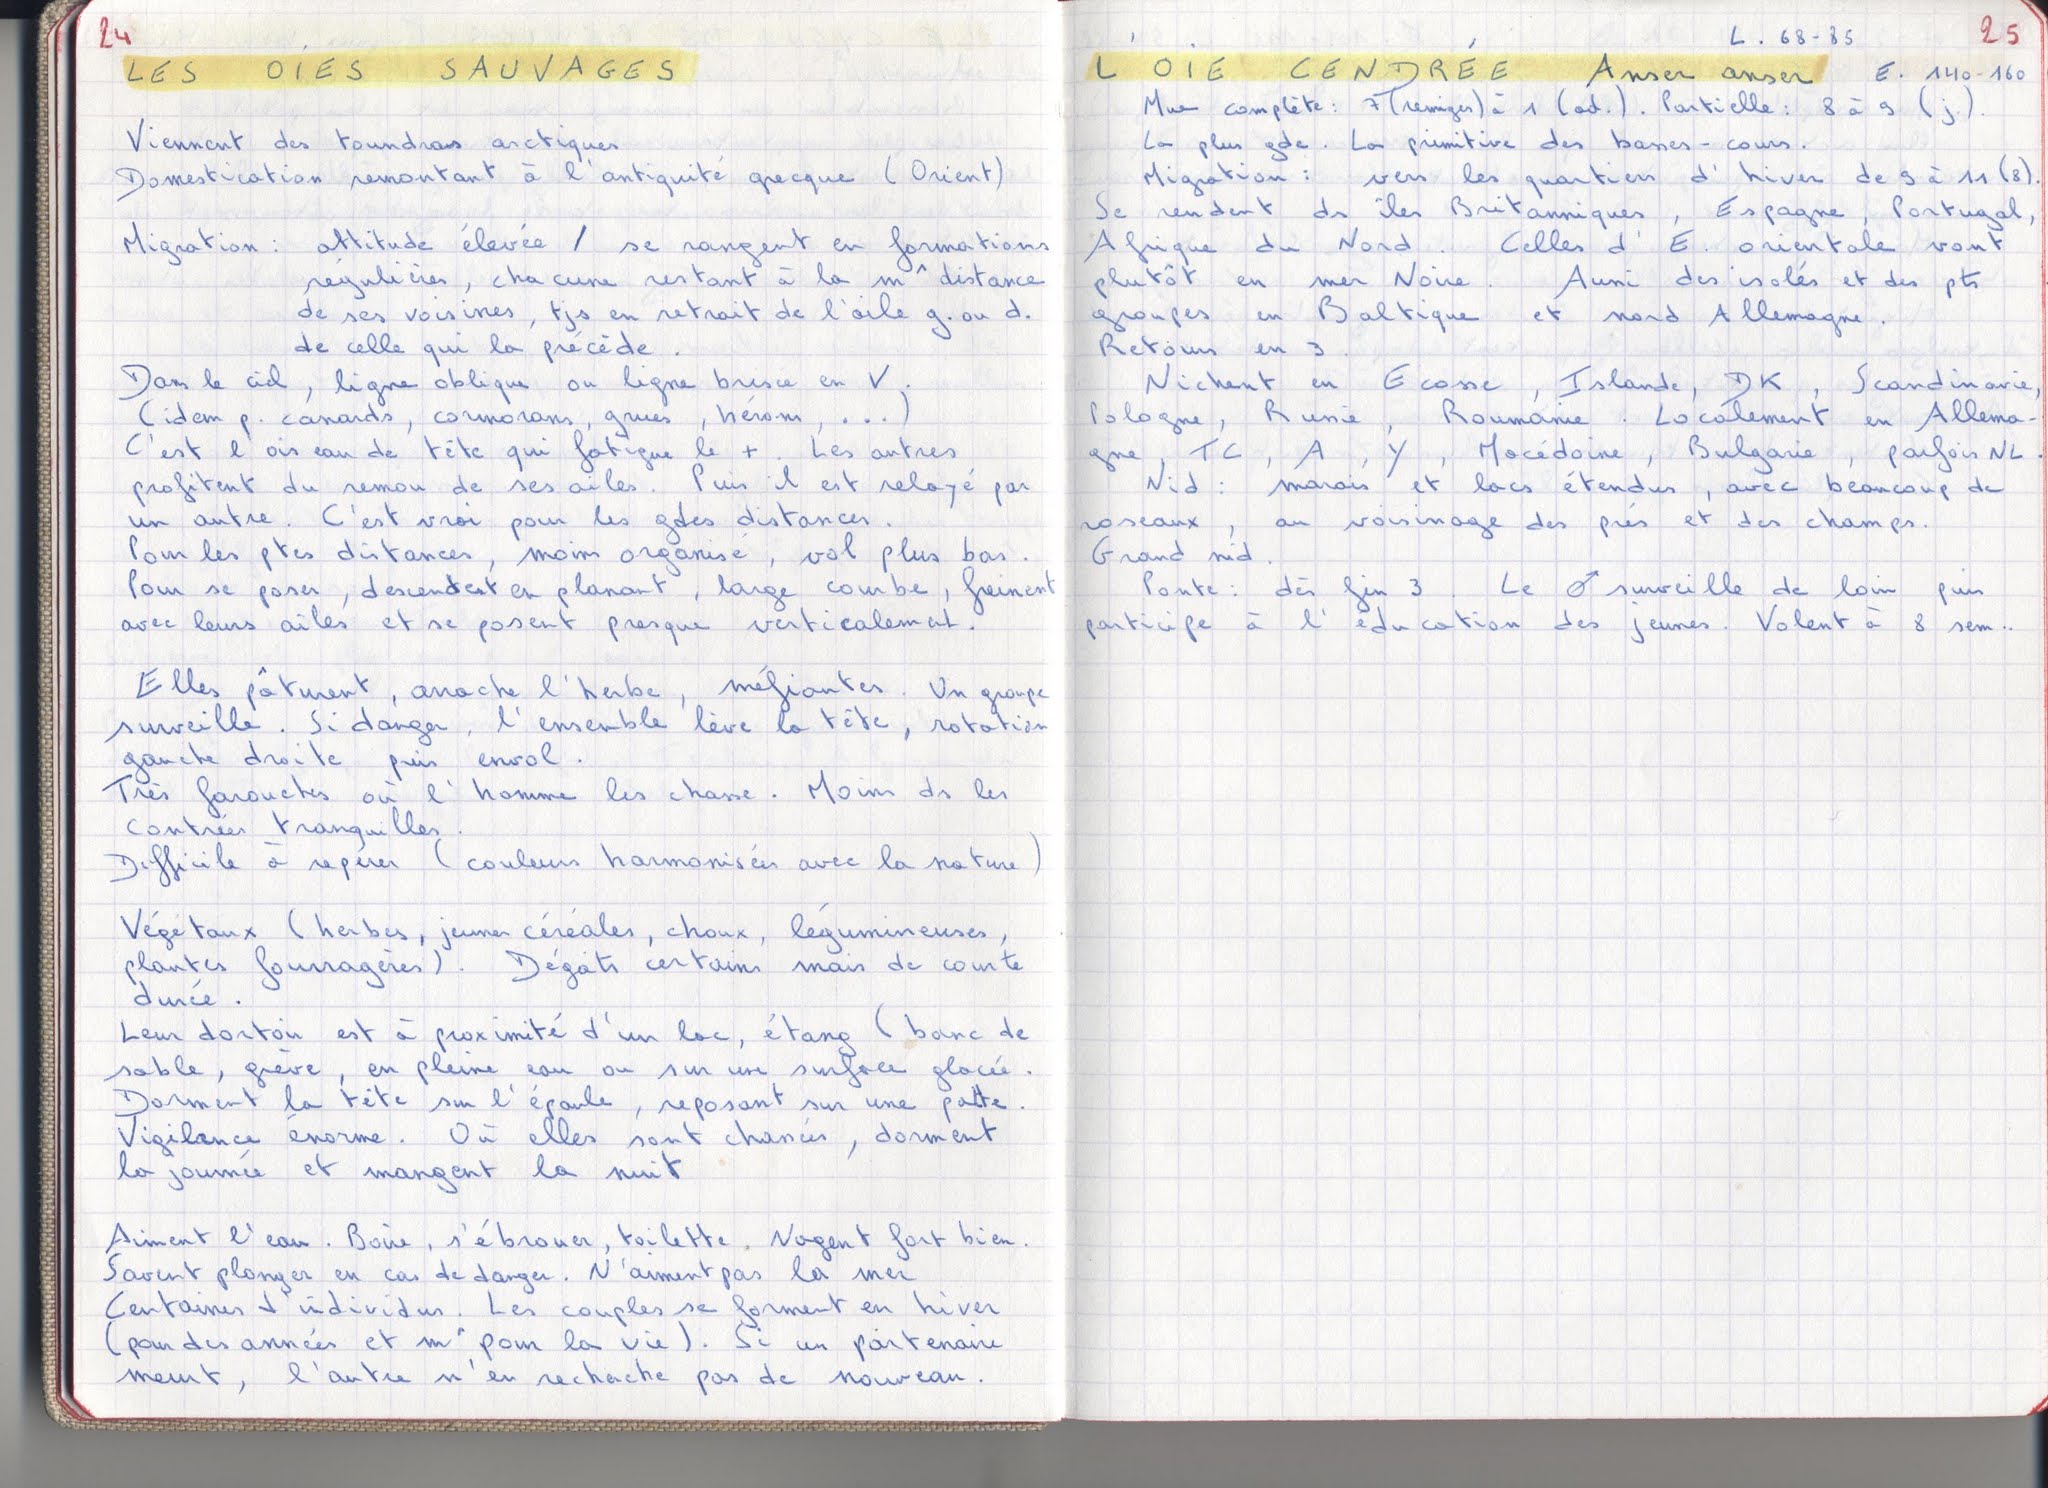 24
LES OIES SAUVAGES
Viennent des toundras arctiques
Domestication remontant à l'antiquité grecque (Orient)
Migration : altitude élevée / se rangent en formations
régulières, chacune restant à la m^ distance
de ses voisines, tjs en retrait de l'aile g. ou d.
de celle qui la précède.
Dans le ciel, ligne oblique ou ligne brisée en V.
(idem p. canards, cormorans, grues, hérons, ...)
C'est l'oiseau de tête qui fatigue le +. Les autres
profitent du remou de ses ailes. Puis il est relayé par
un autre. C'est vrai pour les gdes distances.
Pour les ptes distances, moins organisé, vol plus bas.
Pour se poser, descendent en planant, large courbe, freinent
avec leurs ailes et se posent presque verticalement.
Elles pâturent, arrache l'herbe, méfiantes. Un groupe
surveille. Si danger, l'ensemble lève la tête, rotation
gauche droite puis envol.
Très farouches où l'homme les chasse. Moins ds les
contrées tranquilles.
Difficile à repérer (couleurs harmonisées avec la nature)
Végétaux (herbes, jeunes céréales, choux, légumineuses,
plantes fourragères). Dégâts certains mais de courte
durée.
Leur dortoir est à proximité d'un lac, étang (banc de
sable, grève, en pleine eau ou sur une surface glacée.
Dorment la tête sur l'épaule, reposant sur une patte.
Vigilance énorme. Où elles sont chassées, dorment
la journée et mangent la nuit
Aiment l'eau. Boire, s'ébrouer, toilette. Nagent fort bien.
Savent plonger en cas de danger. N'aiment pas la mer
Centaines d'individus. Les couples se forment en hiver
(pour des années et m^ pour la vie). Si un partenaire
meurt, l'autre n'en recherche pas de nouveau.
L. 68-85
25
L'OIE CENDRÉE Anser anser E. 140-160
Mue complète : 7 (rémiges) à 1 (ad.). Partielle : 8 à 9 (j.).
La plus gde. La primitive des basses-cours.
Migration : vers les quartiers d'hiver de 9 à 11 (8).
Se rendent ds îles Britanniques, Espagne, Portugal,
Afrique du Nord. Celles d'E. orientale vont
plutôt en mer Noire. Aussi des isolés et des pts
groupes en Baltique et nord Allemagne.
Retours en 3.
Nichent en Ecosse, Islande, DK, Scandinavie,
Pologne, Russie, Roumanie. Localement en Allema-
gne, TC, A, Y, Macédoine, Bulgarie, parfois NL.
Nid : marais et lacs étendus, avec beaucoup de
roseaux, au voisinage des prés et des champs.
Grand nid.
Ponte : dès fin 3. Le ♂ surveille de loin puis
participe à l'éducation des jeunes. Volent à 8 sem..